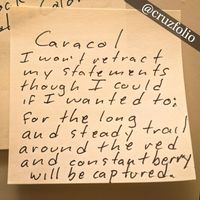 @cruzfolio
Caracol
I won't retract
my statements
though I could
if I wanted to;
for the long
and steady trail
around the red
and constant berry
will be captured.